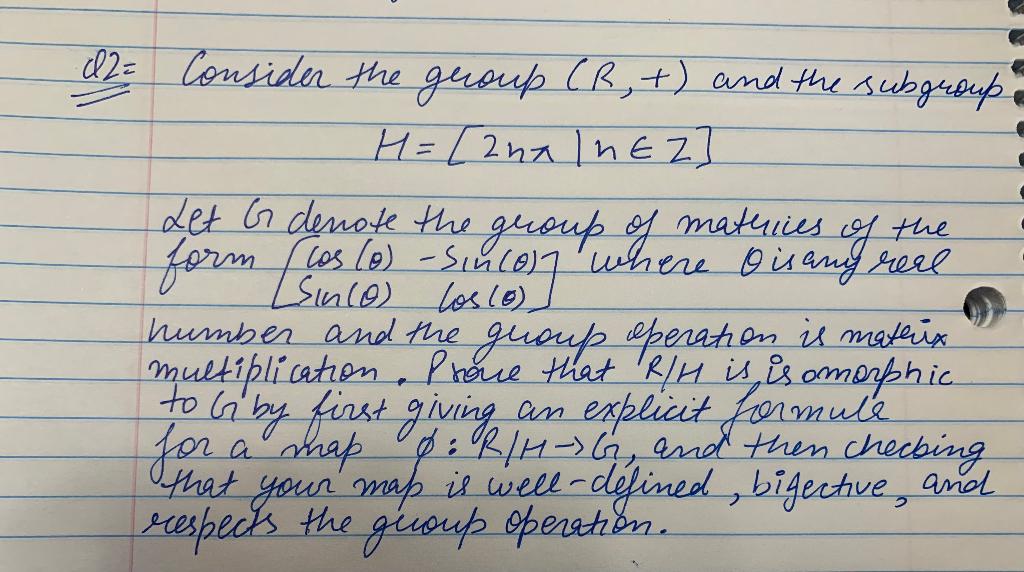 Q2= Consider the group (R, +) and the subgroup
H = [2nπ | n ∈ Z]
Let G denote the group of matrices of the
form [cos(θ) -Sin(θ)] where θ is any real
[Sin(θ) cos(θ)]
number and the group operation is matrix
multiplication. Prove that R/H is isomorphic
to G by first giving an explicit formula
for a map ϕ: R/H → G, and then checking
that your map is well-defined, bijective, and
respects the group operation.